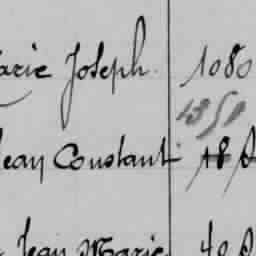 arie Joseph. 1080
1351
Jean Constant 18
Jean Marie 40